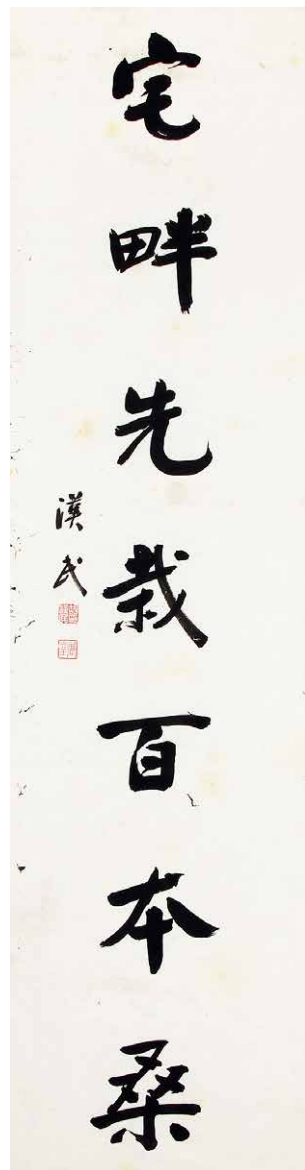 宅畔先栽百本桑
漢民